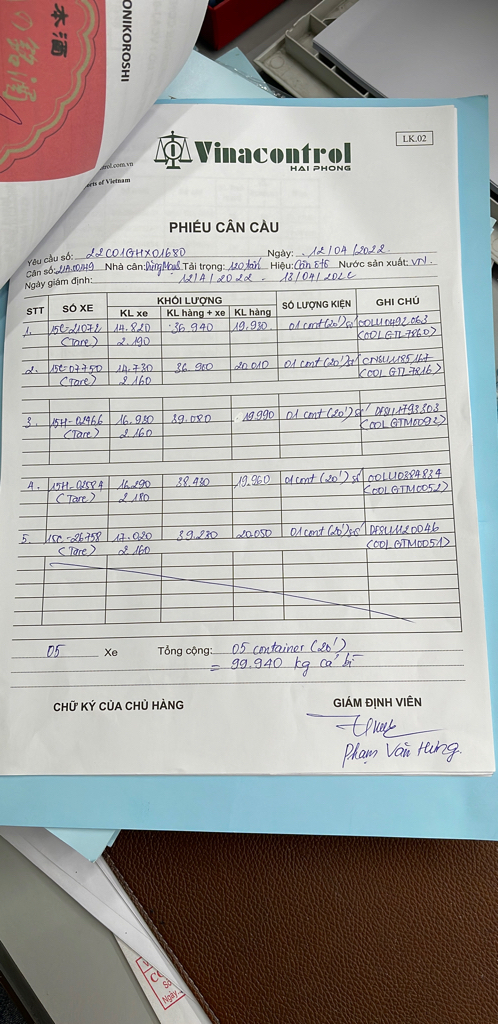 本酒
ONIKOROSHI
LK.02
Vinacontrol
HAI PHONG
rol.com.vn
rts of Vietnam
PHIẾU CÂN CẨU
Yêu cầu số: 22C01GHX01680 Ngày: 12/04/2022
Cân số: Nhà cân: Tải trọng: 120 tấn Hiệu: Cân ôtô Nước sản xuất: VN.
Ngày giám định: 12/4/2022 - 13/04/2022
STT SỐ XE KHỐI LƯỢNG SỐ LƯỢNG KIỆN GHI CHÚ
KL xe KL hàng + xe KL hàng
1. 15C-21072 14.820 36.940 19.930 01 cont (20') số COLU0492063
(Tare) 2.190 (OOLGTL7860)
2. 15C-07750 14.730 36.900 20.010 01 cont (20') số CNSU1185167
(Tare) 2.160 (OOLGTL7816)
3. 15H-02966 16.930 39.080 19.990 01 cont (20') số DFSU1793303
(Tare) 2.160 (OOLGTM0092)
4. 15H-02584 16.290 38.430 19.960 01 cont (20') số OOLU0384834
(Tare) 2.180 (OOLGTM0052)
5. 15C-26758 17.020 39.230 20.050 01 cont (20') số DFSU1120046
(Tare) 2.160 (OOLGTM0051)
05 Xe Tổng cộng: 05 container (20')
= 99.940 kg cả bì
CHỮ KÝ CỦA CHỦ HÀNG GIÁM ĐỊNH VIÊN
Phạm Văn Hưng.
Số
Ngày